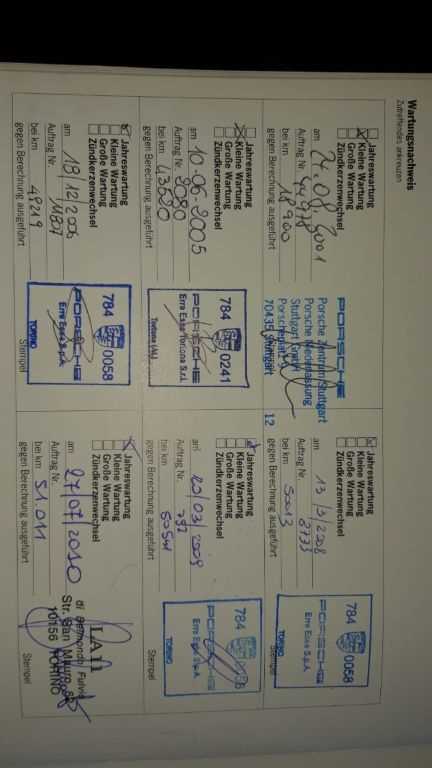 Wartungsnachweis
Zutreffendes ankreuzen
Jahreswartung
Kleine Wartung
Große Wartung
Zündkerzenwechsel
am
Auftrag Nr.
bei km 18900
gegen Berechnung ausgeführt
PORSCHE
Porsche Zentrum Stuttgart
Porsche Niederlassung
Stuttgart GmbH
Porscheplatz
70435 Stuttgart
12
Jahreswartung
Kleine Wartung
Große Wartung
Zündkerzenwechsel
am 13/3/2008
Auftrag Nr. 2733
bei km
gegen Berechnung ausgeführt
784 0058
PORSCHE
Erre Esse S.p.A.
TORINO
Jahreswartung
Kleine Wartung
Große Wartung
Zündkerzenwechsel
am 10-06-2005
Auftrag Nr.
bei km
gegen Berechnung ausgeführt
784 0241
PORSCHE
Erre Esse Tortona S.r.l.
Tortona (AL)
Jahreswartung
Kleine Wartung
Große Wartung
Zündkerzenwechsel
am 20/03/2009
Auftrag Nr. 792
bei km
gegen Berechnung ausgeführt
784
PORSCHE
TORINO
Stempel
Jahreswartung
Kleine Wartung
Große Wartung
Zündkerzenwechsel
am 18/12/2006
Auftrag Nr.
bei km 49219
gegen Berechnung ausgeführt
784 0058
PORSCHE
Erre Esse S.p.A.
TORINO
Stempel
Jahreswartung
Kleine Wartung
Große Wartung
Zündkerzenwechsel
am 27/07/2010
Auftrag Nr.
bei km 51011
gegen Berechnung ausgeführt
di Belmondo Fulvio
Str. San Mauro
10156 TORINO
Stempel